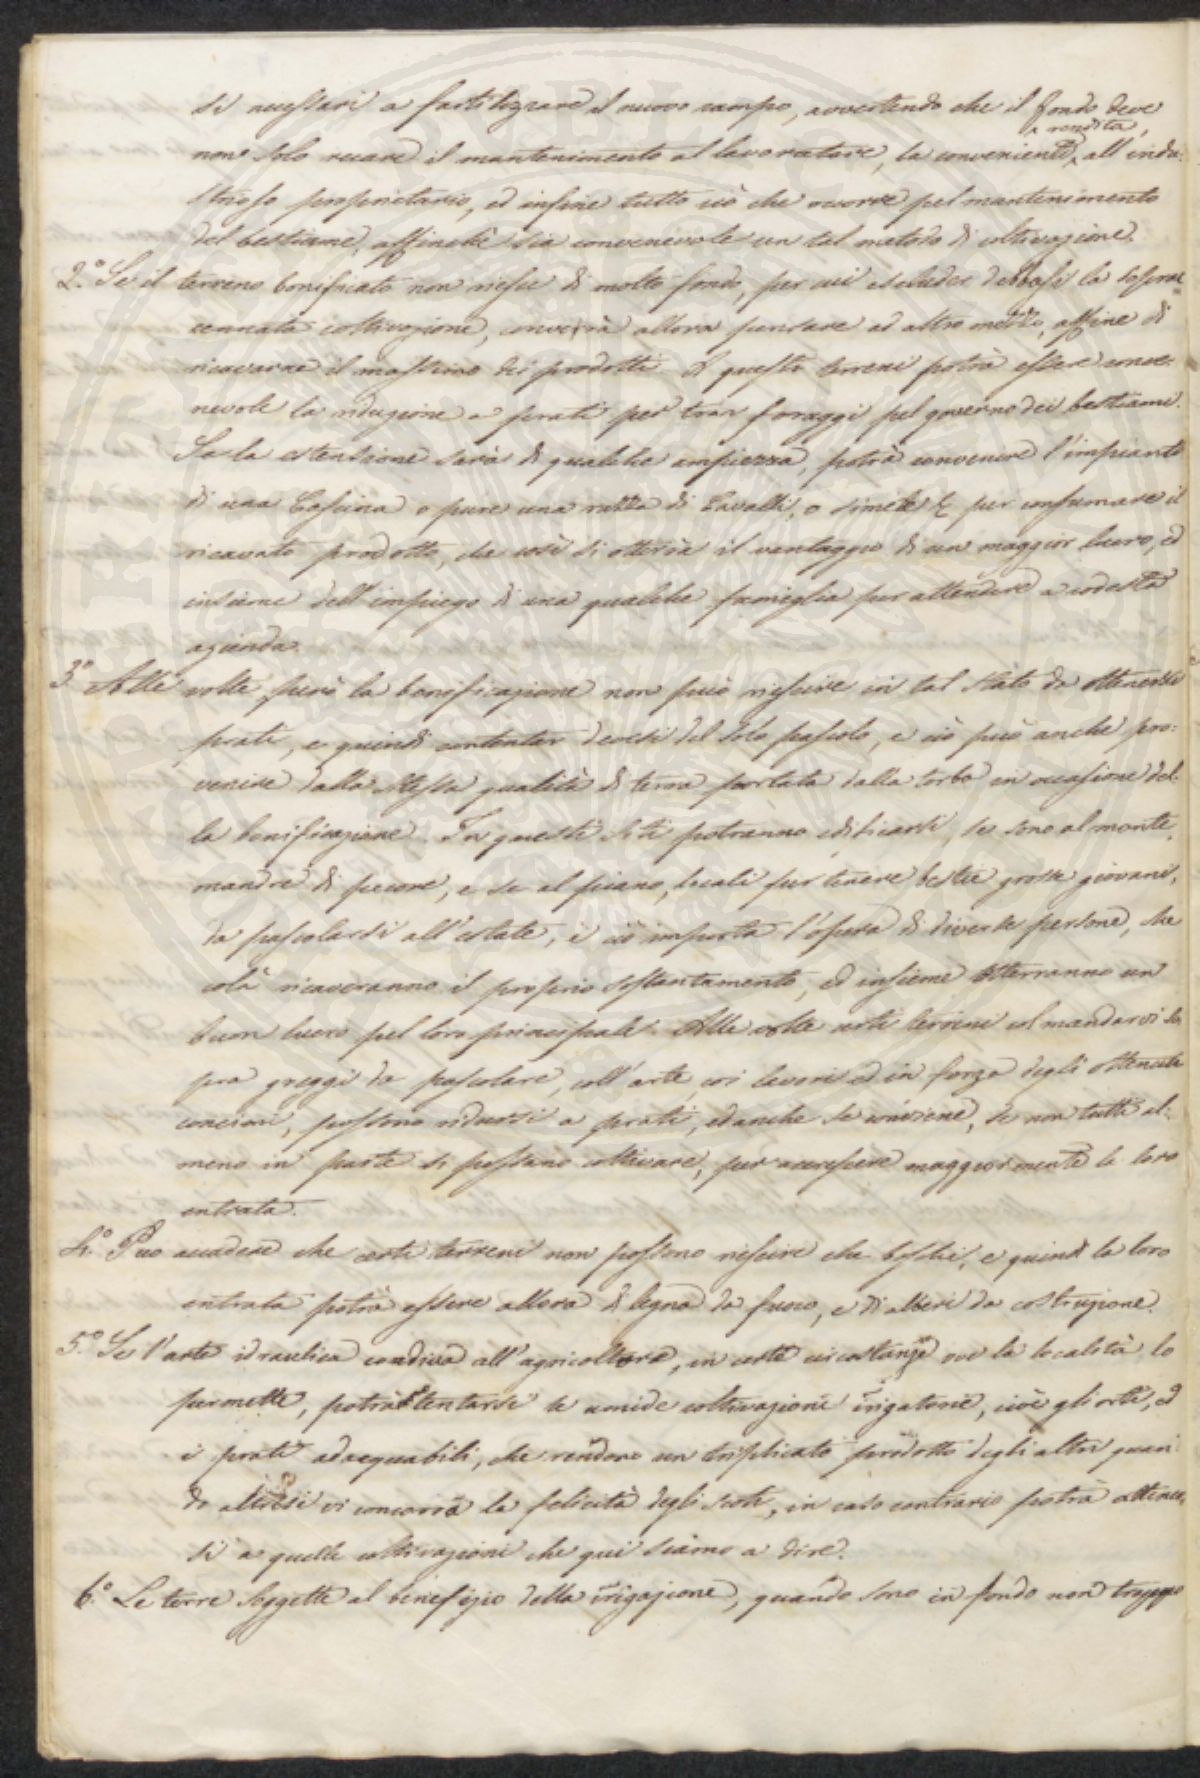 si necessari a fertilizzare il nuovo campo, avvertendo che il fondo deve
non solo recare il mantenimento al lavoratore, la conveniente ^ rendita, all'indu:
strioso proprietario, ed infine tutto ciò che occorre pel mantenimento
del bestiame, affinchè sia convenevole un tal metodo di coltivazione.
2.° Se il terreno bonificato non riesce di molto fondo, per cui escluder debbasi la soprac=
cennata coltivazione, converrà allora pensare ad altro metodo, affine di
ricavarne il massimo dei prodotti. A questi terreni potrà essere conve:
nevole la riduzione a prati per trar foraggi pel governo dei bestiami.
Se la estensione sarà di qualche ampiezza, potrà convenire l'impianto
di una Cascina o pure una razza di Cavalli, o simile &c per consumare il
ricavato prodotto, che così si otterrà il vantaggio di un maggior lucro, ed
insieme dell'impiego di una qualche famiglia per attendere a codesta
azienda.
3.° Alle volte però la bonificazione non può riescire in tal stato da ottenersi
prati, e quindi contentar devesi del solo pascolo, e ciò può anche pro:
venire dalla stessa qualità di terra portata dalla torba in occasione del:
la bonificazione. In questi siti potranno edificarsi, se sono al monte,
mandre di pecore, e se al piano, locali per tenere bestie grosse giovani,
da pascolarsi all'estate, e ciò importa l'opera di diverse persone, che
colà ricaveranno il proprio sostantamento, ed insieme otterranno un
buon lucro pel loro principale. Alle volte certi terreni col mandarvi so
pra greggi da pascolare, coll'arte, coi lavori ed in forza degli ottenuti
concimi, possono ridursi a prati, ed anche se conviene, se non tutti al:
meno in parte si possano coltivare, per accrescere maggiormente la loro
entrata.
4.° Può accadere che certi terreni non possono riescire che boschi, e quindi la loro
entrata potrà essere allora di legna da fuoco, e di alberi da costruzione.
5.° Se l'arte idraulica condiva all'agricoltore, in certe circostanze ove la località lo
permette, potrà tentarsi le umide coltivazioni irrigatorie, cioè gli orti, ed
i prati adacquabili, che rendono un triplicato prodotto degli altri quan
do altresì vi concorra la felicità degli scoli, in caso contrario potrà attener
si a quelle coltivazioni che qui siamo a dire.
6.° Le terre soggette al benefizio della irrigazione, quando sono in fondo non troppo